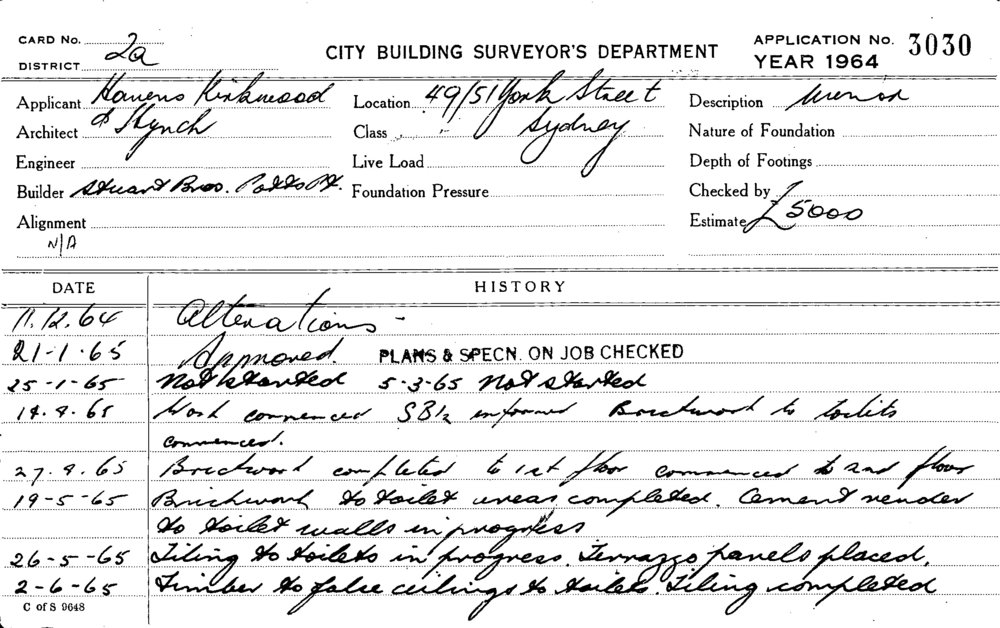 CARD No. 2a
DISTRICT
CITY BUILDING SURVEYOR'S DEPARTMENT
APPLICATION No. 3030
YEAR 1964
Applicant Kirkwood
Architect &
Engineer
Builder Stuart Bros. Potts Pt.
Alignment
N/A
Location 49/51 York Street
Class Sydney
Live Load
Foundation Pressure
Description
Nature of Foundation
Depth of Footings
Checked by
Estimate £5000
DATE HISTORY
11.12.64 Alterations -
21-1-65 Approved. PLANS & SPECN. ON JOB CHECKED
25-1-65 Not started 5-3-65 Not started
14.4.65 Work commenced informed Brickwork to toilets
commenced.
27.4.65 Brickwork completed to 1st floor commenced to 2nd floor
19-5-65 Brickwork to toilet areas completed. Cement render
to toilet walls in progress
26-5-65 Tiling to toilets in progress. Terrazzo panels placed.
2-6-65 Timber to false ceilings to toilets. Tiling completed
C of S 9648